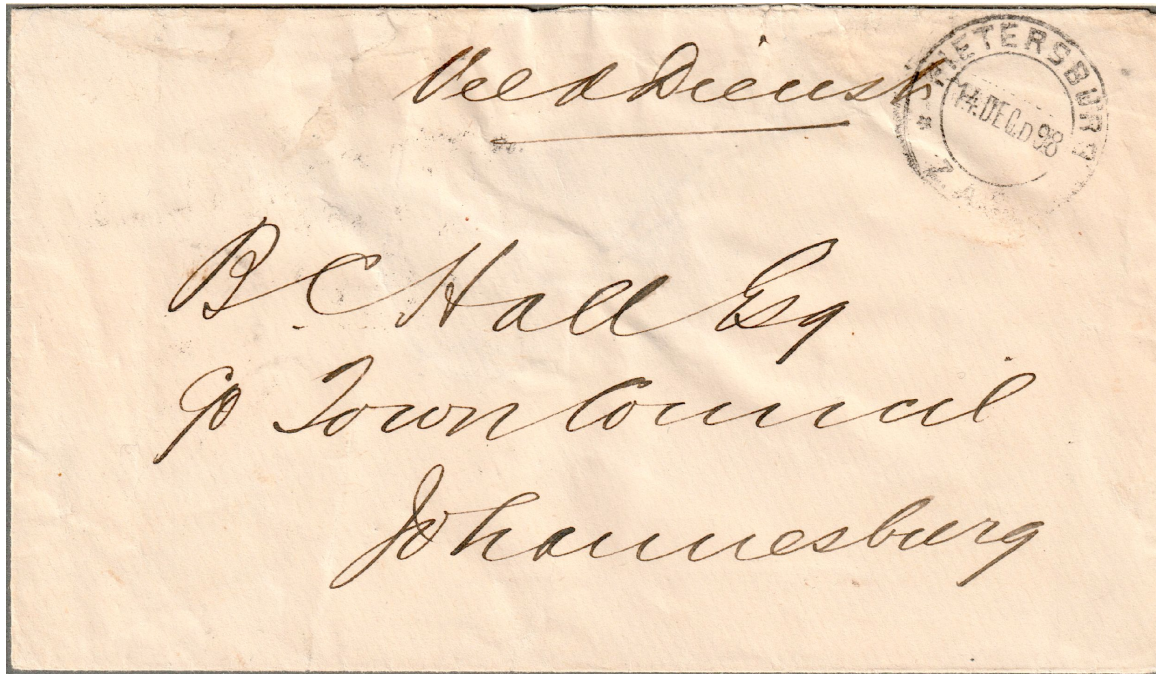 Veld Dienst
PIETERSBURG
14.DEC.D98
Z.A.R.
B C Hall Esq
c/o Town Council
Johannesburg